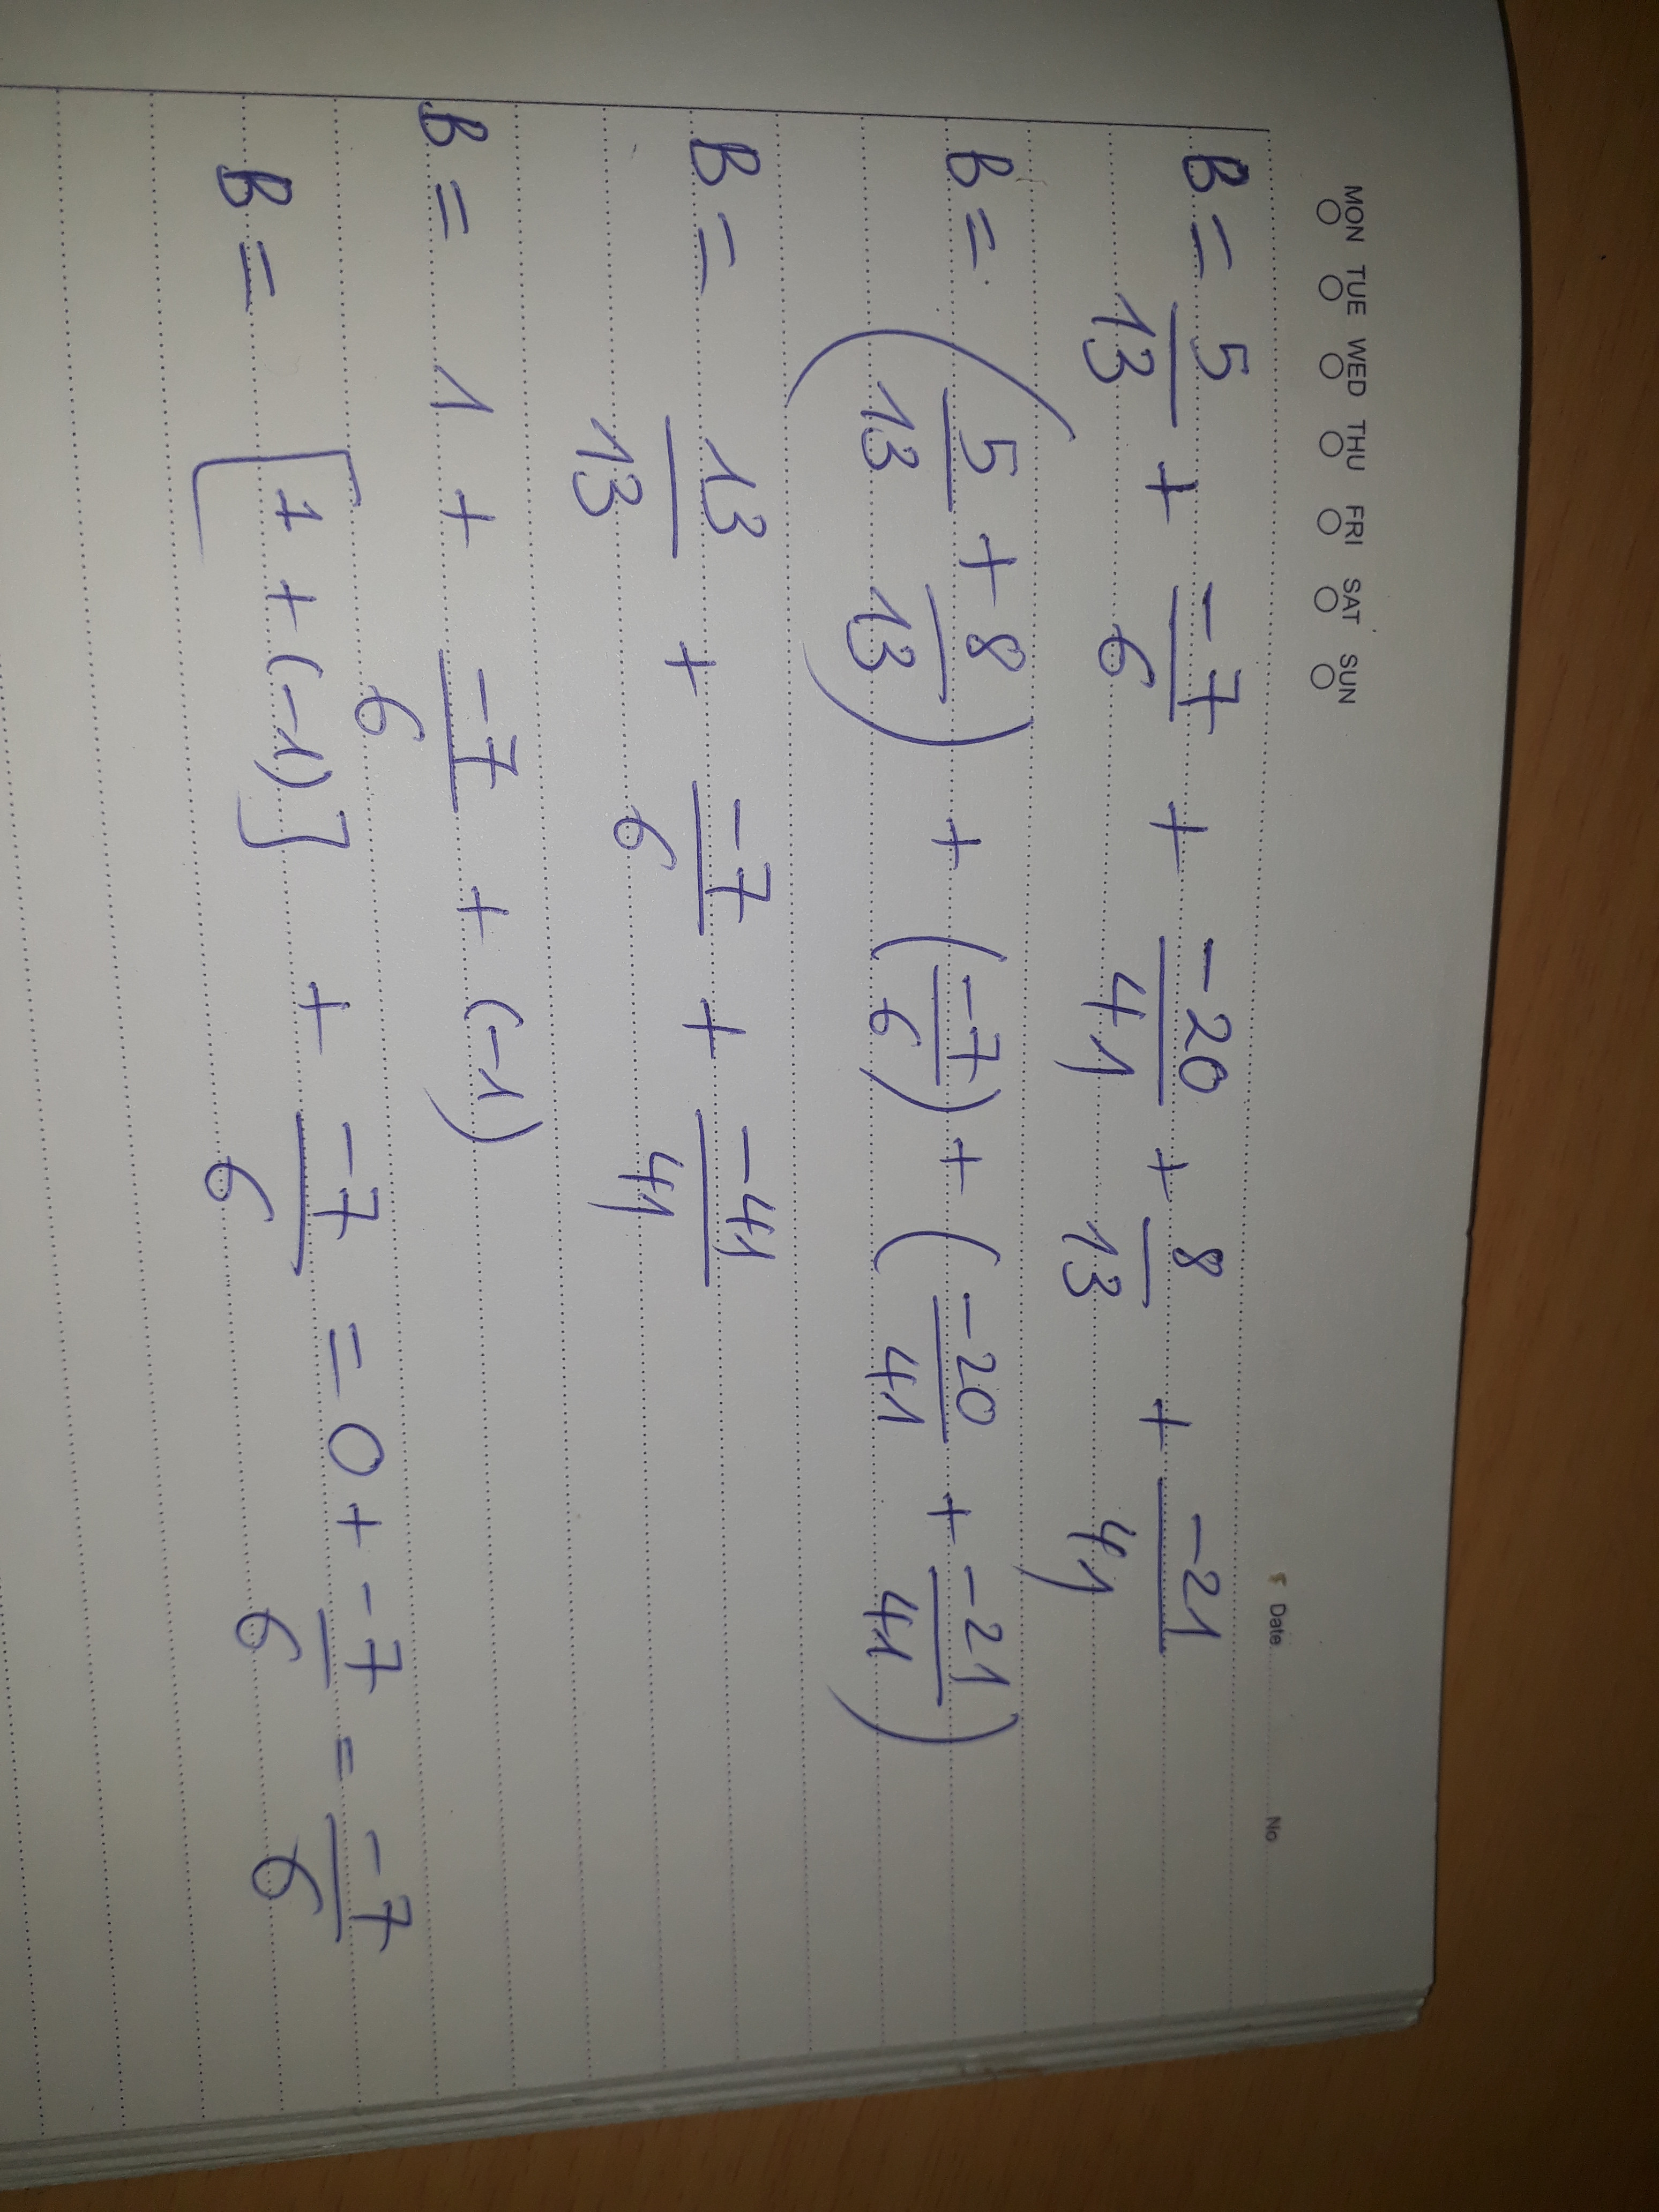 MON TUE WED THU FRI SAT SUN
Date No
B = 5/13 + -7/6 + -20/41 + 8/13 + -21/41
B = (5/13 + 8/13) + (-7/6) + (-20/41 + -21/41)
B = 13/13 + -7/6 + -41/41
B = 1 + -7/6 + (-1)
B = [1 + (-1)] + -7/6 = 0 + -7/6 = -7/6